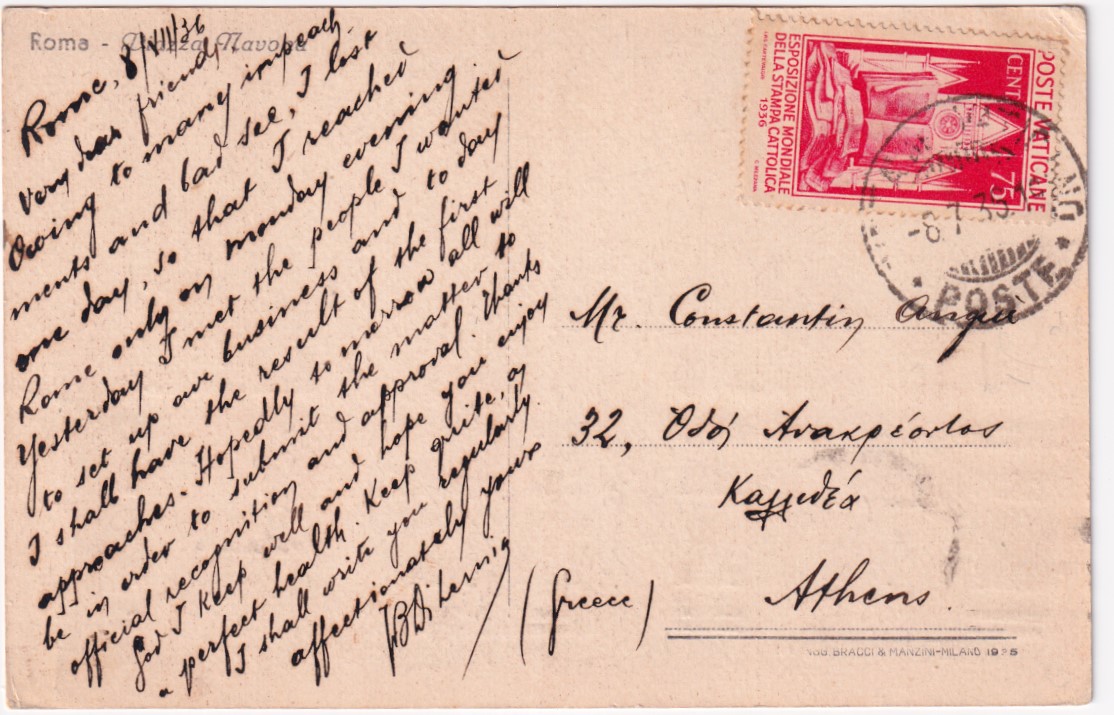 Roma - Piazza Navona
Rome, 8/VII/36
Very dear friend,
Owing to many impeach-
ments and bad see, I lost
one day, so that I reached
Rome only on monday evening
Yesterday I met the people I wanted
to set up our business and to day
I shall have the result of the first
approaches. Hopedly to morrow all will
be in order to submit the matter to
official recognition and approval. Thanks
god I keep well and hope you enjoy
a perfect health. Keep quite, as
I shall write you regularly
affectionately yours
POSTE VATICANE
CENT. 75
ESPOSIZIONE MONDIALE
DELLA STAMPA CATTOLICA
1936
-8.7.36
POSTE
Mr. Constantin
32, Οδός Ανακρέοντος
Καλλιθέα
Athens.
(Greece)
ING. BRACCI & MANZINI-MILANO 1935